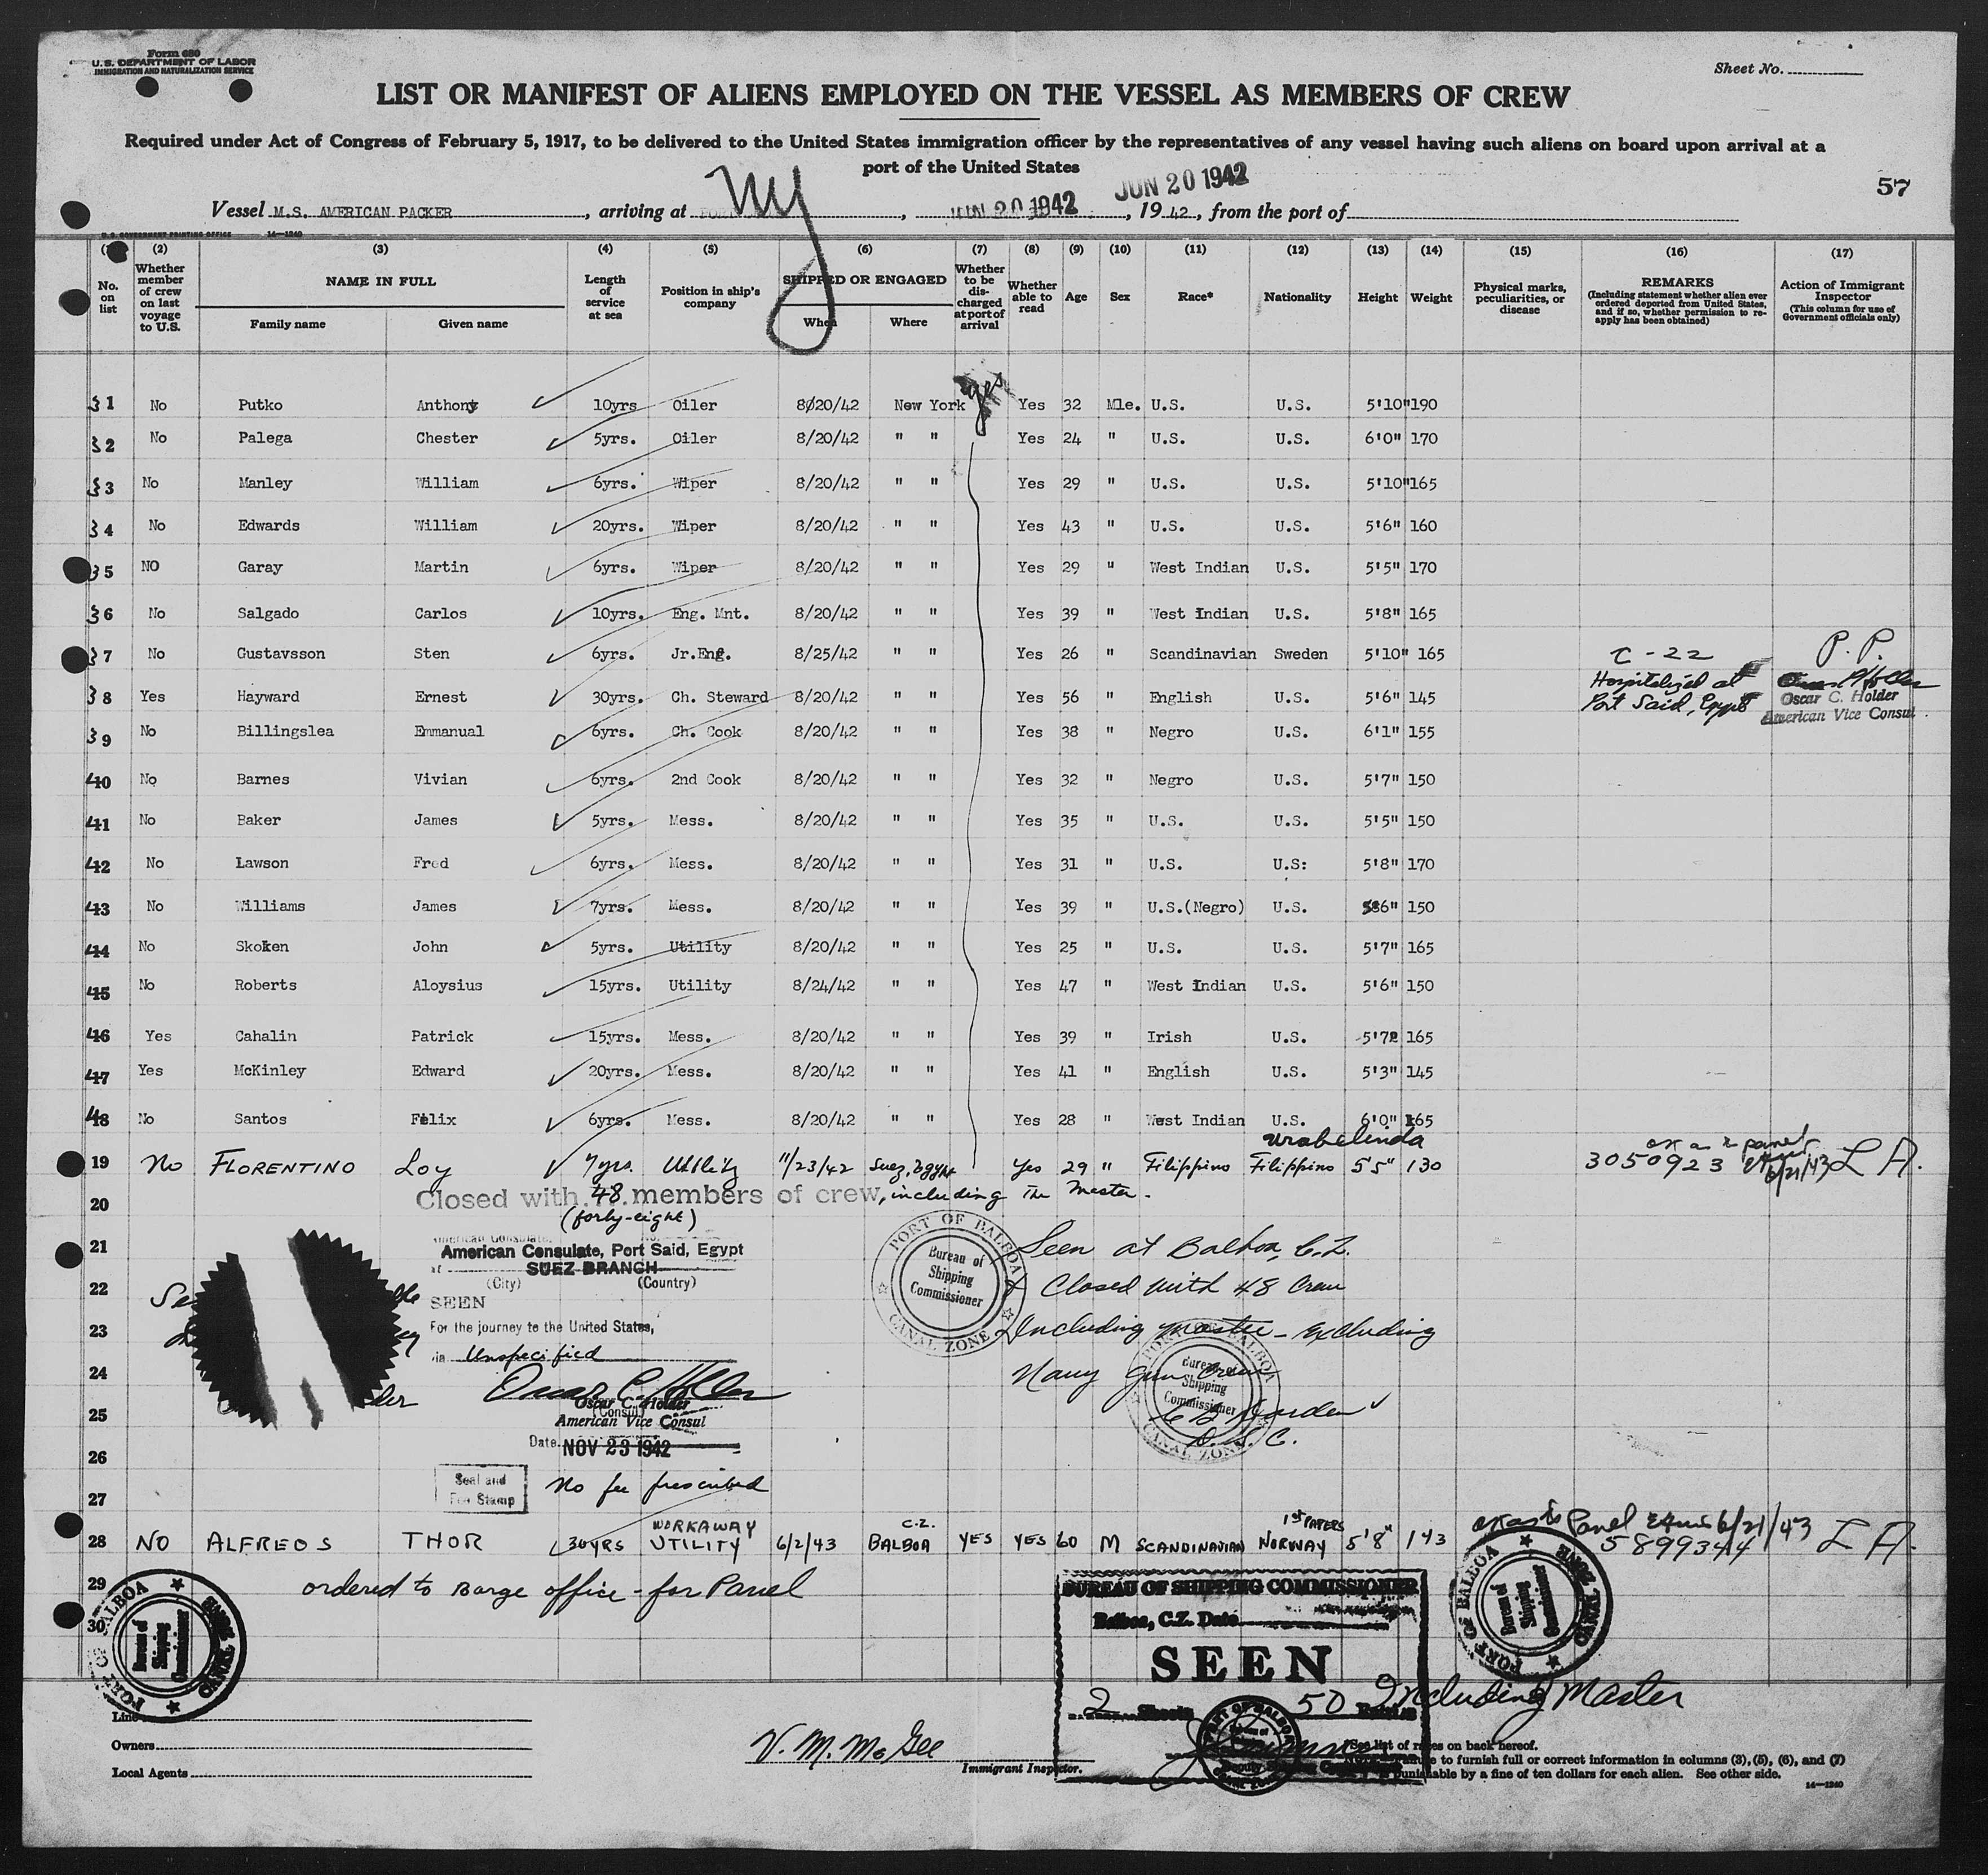 Form 680
U.S. DEPARTMENT OF LABOR
IMMIGRATION AND NATURALIZATION SERVICE
Sheet No.
LIST OR MANIFEST OF ALIENS EMPLOYED ON THE VESSEL AS MEMBERS OF CREW
Required under Act of Congress of February 5, 1917, to be delivered to the United States immigration officer by the representatives of any vessel having such aliens on board upon arrival at a
port of the United States
JUN 20 1942
57
Vessel M.S. AMERICAN PACKER, arriving at NY, JUN 20 1942, 19 42, from the port of
U.S. GOVERNMENT PRINTING OFFICE 14—1240
(2) (3) (4) (5) (6) (7) (8) (9) (10) (11) (12) (13) (14) (15) (16) (17)
No. on list
Whether member of crew on last voyage to U.S.
NAME IN FULL
Family name
Given name
Length of service at sea
Position in ship's company
SHIPPED OR ENGAGED
When
Where
Whether to be discharged at port of arrival
Whether able to read
Age
Sex
Race*
Nationality
Height
Weight
Physical marks, peculiarities, or disease
REMARKS
(Including statement whether alien ever ordered deported from United States, and if so, whether permission to reapply has been obtained)
Action of Immigrant Inspector
(This column for use of Government officials only)
31 No Putko Anthony 10yrs Oiler 8/20/42 New York yes Yes 32 Mle. U.S. U.S. 5'10" 190
32 No Palega Chester 5yrs. Oiler 8/20/42 " " Yes 24 " U.S. U.S. 6'0" 170
33 No Manley William 6yrs. Wiper 8/20/42 " " Yes 29 " U.S. U.S. 5'10" 165
34 No Edwards William 20yrs. Wiper 8/20/42 " " Yes 43 " U.S. U.S. 5'6" 160
35 NO Garay Martin 6yrs. Wiper 8/20/42 " " Yes 29 " West Indian U.S. 5'5" 170
36 No Salgado Carlos 10yrs. Eng. Mnt. 8/20/42 " " Yes 39 " West Indian U.S. 5'8" 165
37 No Gustavsson Sten 6yrs. Jr.Eng. 8/25/42 " " Yes 26 " Scandinavian Sweden 5'10" 165 C-22 P.P.
38 Yes Hayward Ernest 30yrs. Ch. Steward 8/20/42 " " Yes 56 " English U.S. 5'6" 145 Hospitalized at Port Said, Egypt Oscar C. Holder American Vice Consul
39 No Billingslea Emmanual 6yrs. Ch. Cook 8/20/42 " " Yes 38 " Negro U.S. 6'1" 155
40 No Barnes Vivian 6yrs. 2nd Cook 8/20/42 " " Yes 32 " Negro U.S. 5'7" 150
41 No Baker James 5yrs. Mess. 8/20/42 " " Yes 35 " U.S. U.S. 5'5" 150
42 No Lawson Fred 6yrs. Mess. 8/20/42 " " Yes 31 " U.S. U.S: 5'8" 170
43 No Williams James 7yrs. Mess. 8/20/42 " " Yes 39 " U.S.(Negro) U.S. 5'6" 150
44 No Skoken John 5yrs. Utility 8/20/42 " " Yes 25 " U.S. U.S. 5'7" 165
45 No Roberts Aloysius 15yrs. Utility 8/24/42 " " Yes 47 " West Indian U.S. 5'6" 150
46 Yes Cahalin Patrick 15yrs. Mess. 8/20/42 " " Yes 39 " Irish U.S. 5'7" 165
47 Yes McKinley Edward 20yrs. Mess. 8/20/42 " " Yes 41 " English U.S. 5'3" 145
48 No Santos Felix 6yrs. Mess. 8/20/42 " " Yes 28 " West Indian U.S. 6'0" 165
19 No FLORENTINO Loy 7yrs. Utility 11/23/42 Suez, Egypt Yes 29 " Filippino Filippino 5'5" 130 3050923 6/21/43 L A.
20 Closed with 48 members of crew, including the Master.
(forty-eight)
21 American Consulate, Port Said, Egypt
at SUEZ BRANCH
(City) (Country)
22 SEEN
23 For the journey to the United States,
via Unspecified
24 Oscar C. Holder
Oscar C. Holder
(Consul)
25 American Vice Consul
Date NOV 23 1942
26
Seal and
Fee Stamp
No fee prescribed
27
PORT OF BALBOA
Bureau of Shipping Commissioner
CANAL ZONE
Seen at Balboa, C.Z.
Closed with 48 Crew
Including master - excluding
Navy Gun Crew
D.S.C.
PORT OF BALBOA
Bureau of Shipping Commissioner
CANAL ZONE
28 NO ALFREDS THOR 30YRS WORKAWAY UTILITY 6/2/43 BALBOA C.Z. YES YES 60 M SCANDINAVIAN 1st PAPERS NORWAY 5'8" 143 Panel 6/21/43 5899344 L A.
29 ordered to Barge office - for Panel
30
PORT OF BALBOA
Bureau of Shipping Commissioner
CANAL ZONE
PORT OF BALBOA
Bureau of Shipping Commissioner
CANAL ZONE
BUREAU OF SHIPPING COMMISSIONER
Balboa, C.Z. Date
SEEN
2 Sheets 50 Including Master
PORT OF BALBOA
Line
Owners
Local Agents
V. M. McGee
Immigrant Inspector.
*See list of races on back hereof.
to furnish full or correct information in columns (3), (5), (6), and (7)
punishable by a fine of ten dollars for each alien. See other side.
14—1240